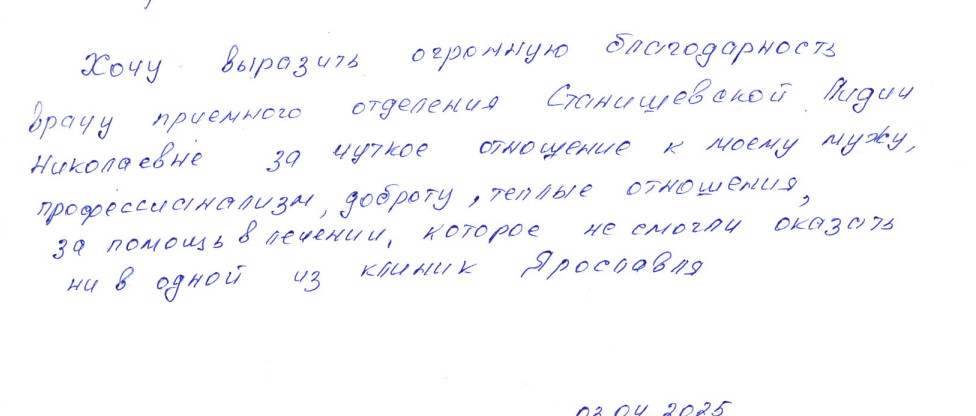 Хочу выразить огромную благодарность
врачу приемного отделения Станишевской Лидии
Николаевне за чуткое отношение к моему мужу,
профессионализм, доброту, теплые отношения,
за помощь в лечении, которое не смогли оказать
ни в одной из клиник Ярославля
03.04.2025